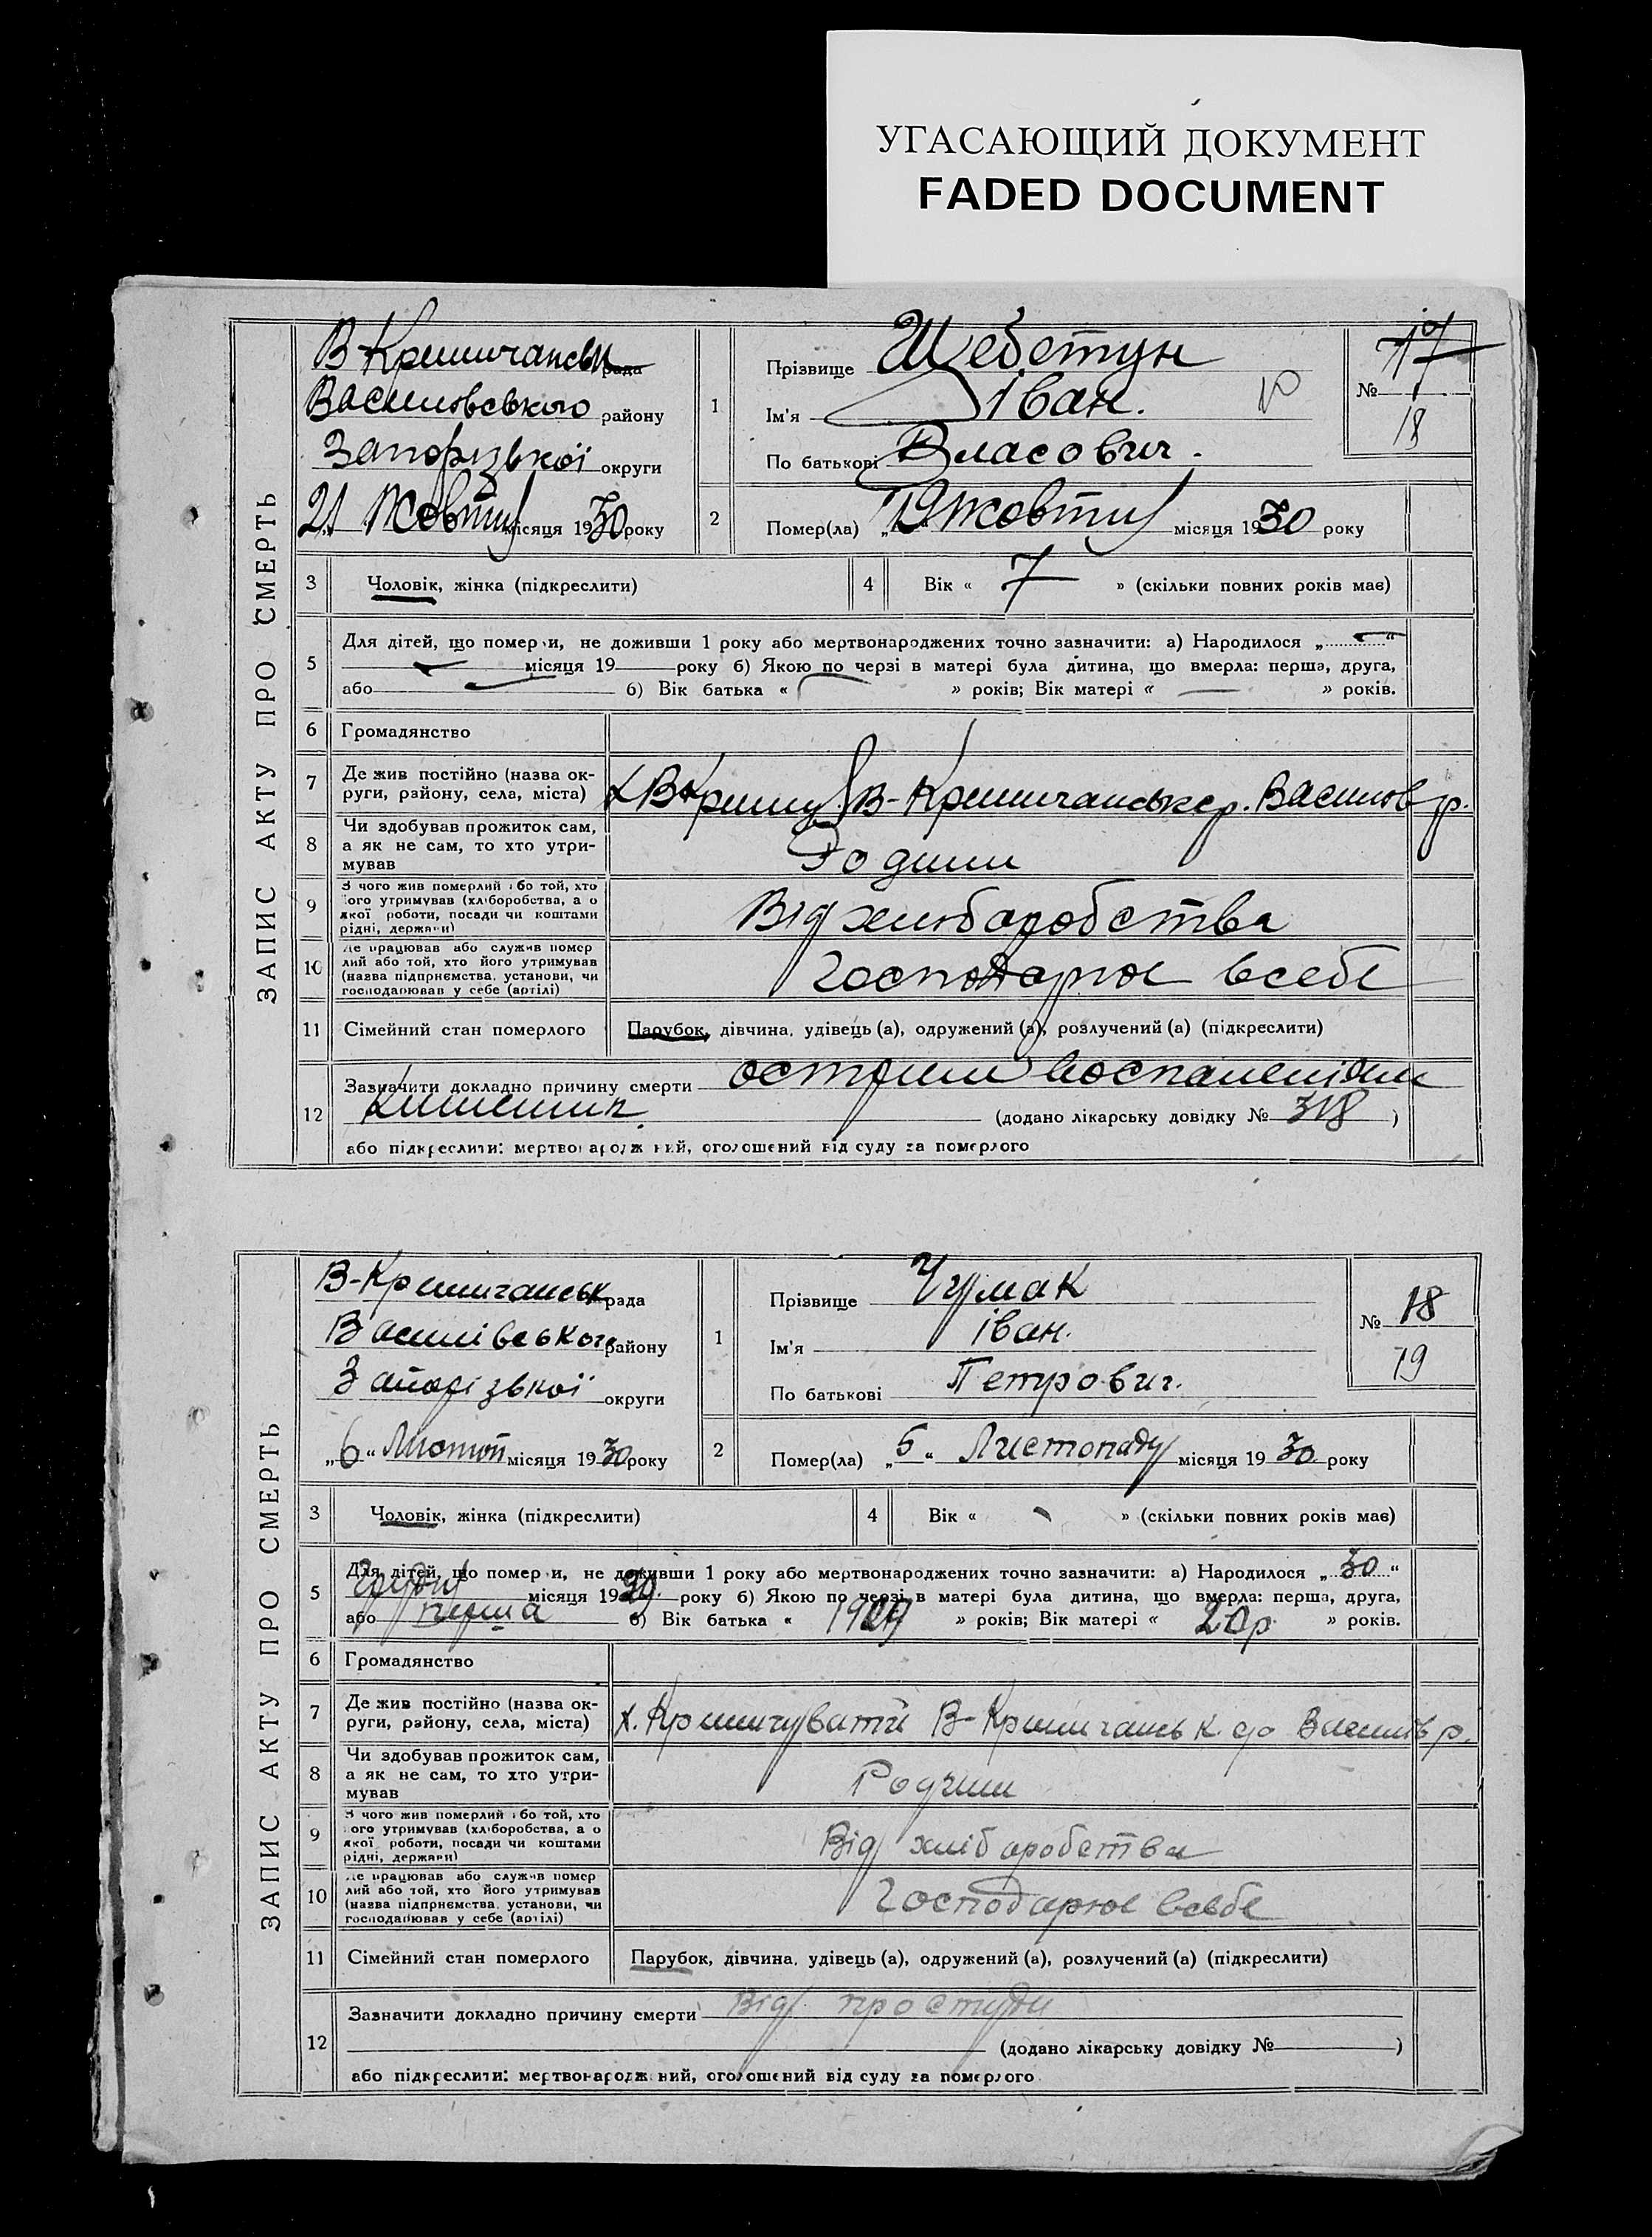 УГАСАЮЩИЙ ДОКУМЕНТ
FADED DOCUMENT
ЗАПИС АКТУ ПРО СМЕРТЬ
рада
Василовського району
Запорізької округи
21 Жовтня місяця 1930 року
1
Прізвище Шебетун
Ім'я Іван.
По батькові Власович.
10
№ 17
18
2
Помер(ла) „19 жовтня місяця 1930 року
3 Чоловік, жінка (підкреслити)
4 Вік « 7 » (скільки повних років має)
5 Для дітей, що помер и, не доживши 1 року або мертвонароджених точно зазначити: а) Народилося „ “
місяця 19 року б) Якою по черзі в матері була дитина, що вмерла: перша, друга,
або б) Вік батька « » років; Вік матері « » років.
6 Громадянство
7 Де жив постійно (назва ок-
руги, району, села, міста)
8 Чи здобував прожиток сам,
а як не сам, то хто утри-
мував
Родини
9 З чого жив померлий або той, хто
його утримував (хліборобства, а о
якої роботи, посади чи коштами
рідні, держави)
Від хлюбаробства
10 Де працював або служив помер
лий або той, хто його утримував
(назва підприємства, установи, чи
господарював у себе (артілі)
Господарює всебе
11 Сімейний стан померлого Парубок, дівчина, удівець (а), одружений (а), розлучений (а) (підкреслити)
12 Зазначити докладно причину смерти
(додано лікарську довідку № 318 )
або підкреслити: мертвонароджений, оголошений від суду за померлого
ЗАПИС АКТУ ПРО СМЕРТЬ
рада
Василівського району
Запорізької округи
„6“ Листоп місяця 1930 року
1
Прізвище Чумак
Ім'я Іван.
По батькові Петрович.
№ 18
19
2
Помер(ла) „5“ Листопаду місяця 1930 року
3 Чоловік, жінка (підкреслити)
4 Вік « » (скільки повних років має)
5 Для дітей, що помер и, не доживши 1 року або мертвонароджених точно зазначити: а) Народилося „30“
Грудня місяця 1929 року б) Якою по черзі в матері була дитина, що вмерла: перша, друга,
або перша б) Вік батька « » років; Вік матері « 20р » років.
6 Громадянство
7 Де жив постійно (назва ок-
руги, району, села, міста)
8 Чи здобував прожиток сам,
а як не сам, то хто утри-
мував
Родини
9 З чого жив померлий або той, хто
його утримував (хліборобства, а о
якої роботи, посади чи коштами
рідні, держави)
Від хлібаробства
10 Де працював або служив помер
лий або той, хто його утримував
(назва підприємства, установи, чи
господарював у себе (артілі)
Господарює всебе
11 Сімейний стан померлого Парубок, дівчина, удівець (а), одружений (а), розлучений (а) (підкреслити)
12 Зазначити докладно причину смерти Від простуди
(додано лікарську довідку № )
або підкреслити: мертвонароджений, оголошений від суду за померлого